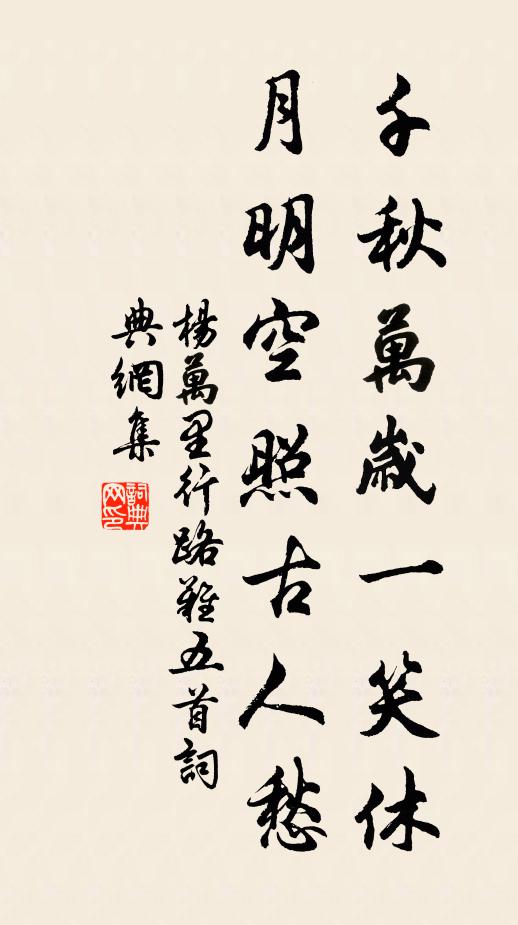 千秋萬歲一笑休
月明空照古人愁
楊萬里行路難五首詞
典網集
詞典网印